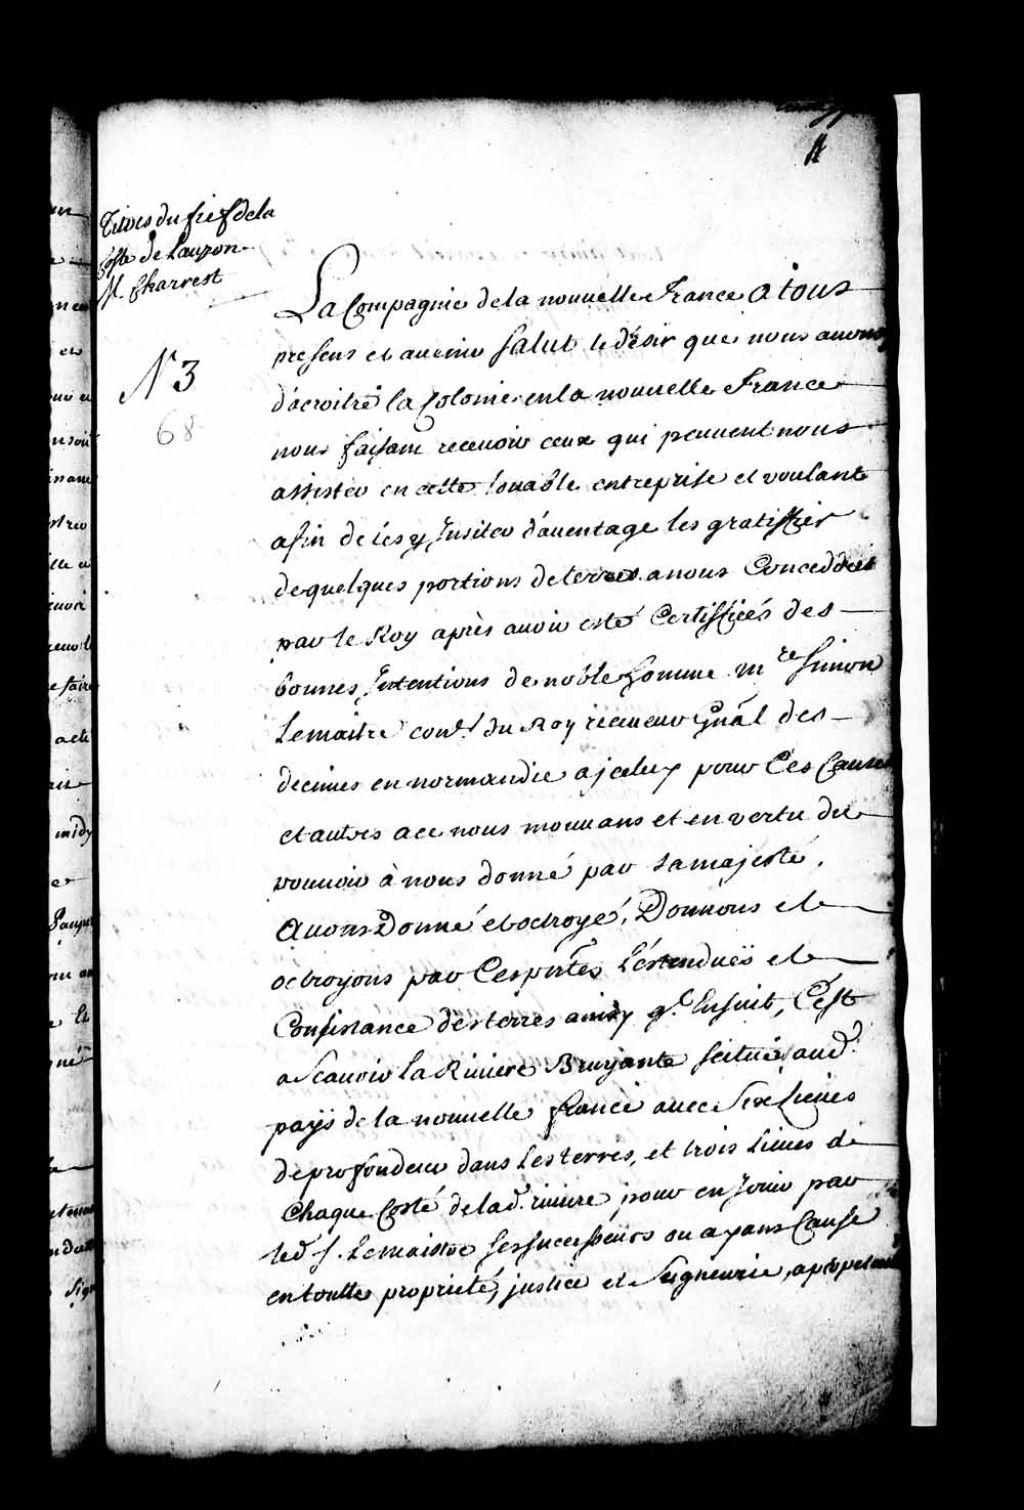 11
Titres du fief dela
Coste de Lauzon
M. Charrest
N 3
68
La Compagnie dela nouuelle France a tous
presens et auenir Salut le désir que nous auons
d'acroitre la Colonie en la nouuelle France
nous faisant receuoir ceux qui peuuent nous
assister en cette louable entreprise et voulant
afin de les y Inuiter d'auentage les gratiffier
de quelques portions de terres a nous Conceddées
par le Roy après auoir esté Certiffiées des
bonnes Intentions de noble homme Mre Simon
Lemaitre coner du Roy receueur gñal des
decimes en normandie a jceluy pour Ces Causes
et autres a ce nous mouuans et en vertu du
pouuoir à nous donné par sa majesté,
Auons Donné et octroyé, Donnons et
octroyons par Ces pñtes L'éstenduës et
Consistance des terres ainsy q. Ensuit, C'est
a Scauoir la Riuiere Bruyante scitué aud.
païs de la nouuelle france auec Six Lieües
de profondeur dans Les terres, et trois Lieues de
Chaque Costé de lad. riuiere pour en Jouir par
led. S. Lemaistre Ses successeurs ou ayans Cause
en toutte propriete, justice et Seigneurie, a perpetuité